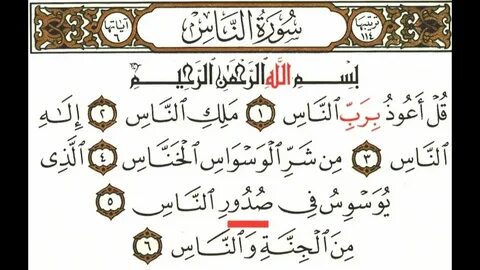 ترتيبها ١١٤ سُورَةُ النَّاسِ آياتها ٦
بِسْمِ اللَّهِ الرَّحْمَٰنِ الرَّحِيمِ
قُلْ أَعُوذُ بِرَبِّ النَّاسِ ١ مَلِكِ النَّاسِ ٢ إِلَٰهِ
النَّاسِ ٣ مِن شَرِّ الْوَسْوَاسِ الْخَنَّاسِ ٤ الَّذِى
يُوَسْوِسُ فِى صُدُورِ النَّاسِ ٥
مِنَ الْجِنَّةِ وَالنَّاسِ ٦